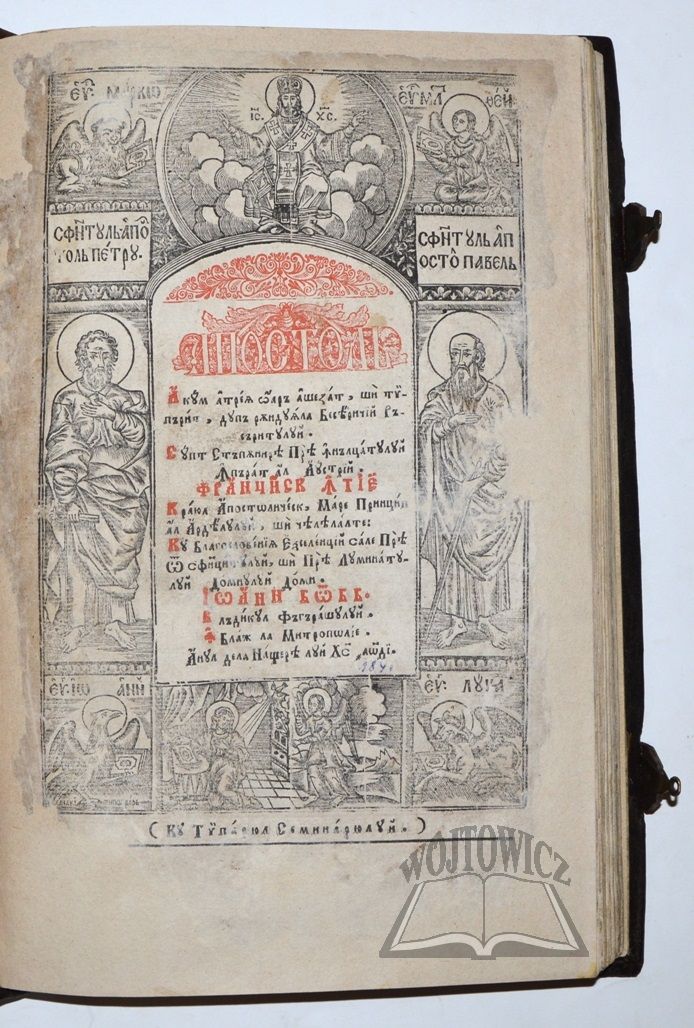 ЕѴ҃: МАРКꙊ
І҃С. Х҃С.
ЕѴ҃: МАТ ѲЕЙ
СФН҃ТꙊЛЬ А҆ПО
ТОЛЬ ПЕТРꙊ.
СФН҃ТꙊЛЬ А҆П
ОСТО҃ ПАВЕЛЬ
АПОСТОЛꙊ
Акꙋм а҆трєꙗ ѡ҆аръ ашєзат, шѝ тѷ-
пърит, дꙋпъ рѫндꙋꙗла Бисєричїй Ръ-
съритꙋлꙋй.
Сꙋпт Стъпѫнирѣ Прѣ ꙟнълцатꙋлꙋй
Ꙟпърат ал Аꙋстрїй.
ФРАНЧИСК ꙞТІЕ
Краюл Апостѡличєск, Марє Принцип
ал Ардѣлꙋлꙋй, шѝ чѣлєлалтє:
Кꙋ Благословєнїꙗ Еѯєлєнцїй салє Прѣ
Ѡсфинцитꙋлꙋй, шѝ Прѣ Лꙋмината-
лꙋй Домнꙋлꙋй Домн.
ІѠАНН БѠББ.
Влъдикꙋл Фъгърашꙋлꙋй.
Ꙟ Блаж ла Митрополїє.
Анꙋл дєла Нащєрѣ лꙋй Х҃с
ЕѴ҃: ІѠ АНН
ЕѴ҃: ЛꙊКА
(Кꙋ Тѷпарюл Сєминарюлꙋй.)
WÓJTOWICZ